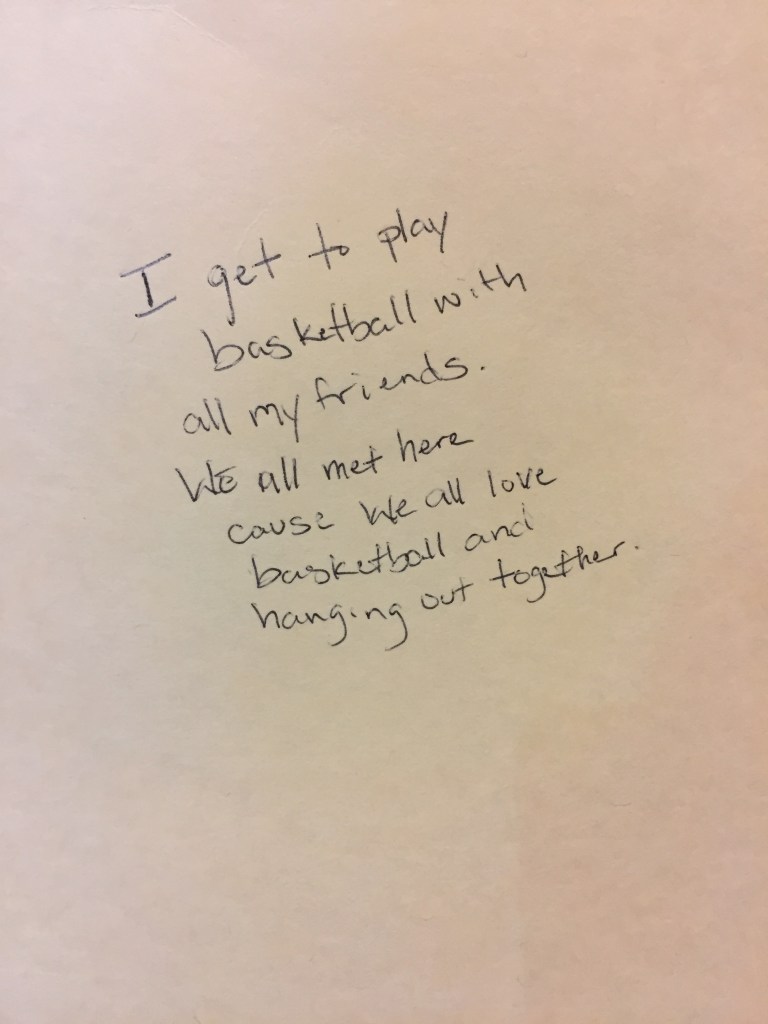 I get to play
basketball with
all my friends.
We all met here
cause we all love
basketball and
hanging out together.